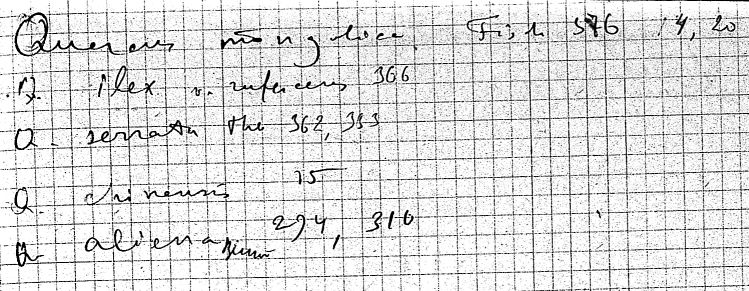 Quercus mongolica Fish 376 14, 20
Q. ilex v. rufescens 366
Q. serrata Thb 362, 353
Q. chinensis 15
Q. aliena 294, 310